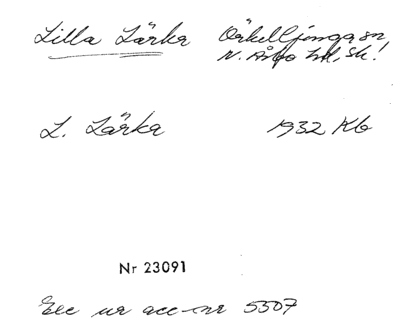 Lilla Lärka Örkelljunga sn
N. Åsbo hd. Sk!
L. Lärka 1932 Kb
Nr 23091
Exc ur acc-nr 5507